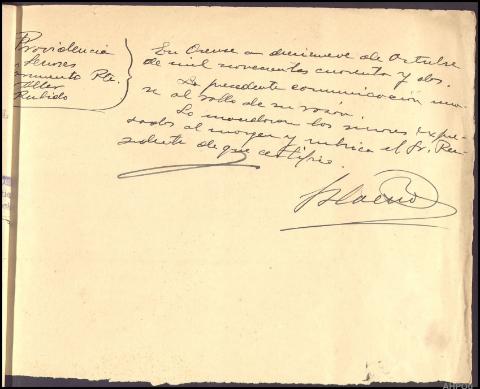 Providencia
Señores
Sarmiento Pte.
Aller
Rubido
En Orense a diecinueve de Octubre
de mil novecientos cuarenta y dos.
La precedente comunicación una-
se al rollo de su razón.
Lo mandaron los señores expre-
sados al margen y rubrica el Sr. Pre-
sidente de que certifico.